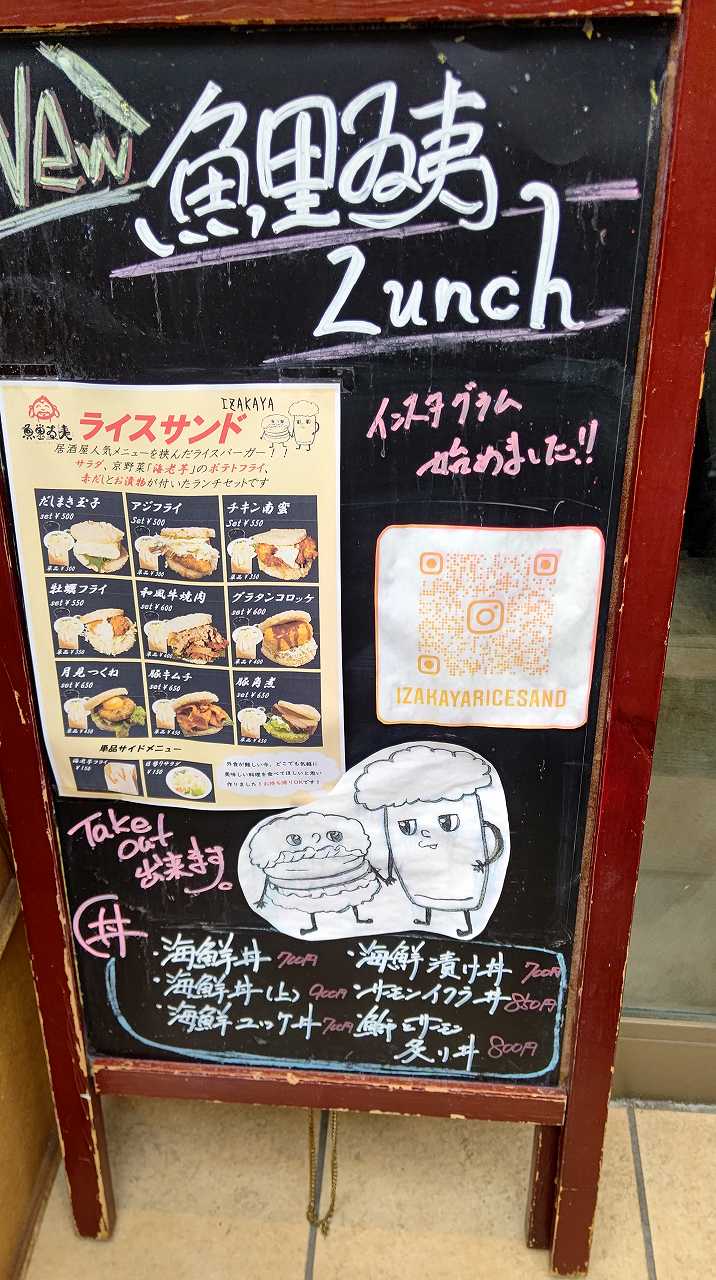 New
Lunch
IZAKAYA
ライスサンド
居酒屋人気メニューを挟んだライスバーガー!!
サラダ、京野菜「海老芋」のポテトフライ、
赤だしとお漬物が付いたランチセットです
だしまき玉子
set ¥500
単品 ¥300
アジフライ
set ¥500
単品 ¥300
チキン南蛮
set ¥550
単品 ¥350
牡蠣フライ
set ¥550
和風牛焼肉
set ¥600
単品 ¥400
グラタンコロッケ
set ¥600
単品 ¥400
月見つくね
set ¥650
単品 ¥450
豚キムチ
set ¥650
単品 ¥450
豚角煮
set ¥650
単品 ¥450
単品サイドメニュー
海老芋フライ
¥150
日替りサラダ
¥150
外食が難しい今、どこでも気軽に
美味しい料理を食べてほしいと思い
作りました!お持ち帰りOKです!
インスタグラム
始めました!!
IZAKAYARICESAND
Take
out
出来ます。
丼
・海鮮丼 700円
・海鮮丼(上) 900円
・海鮮ユッケ丼 700円
・海鮮漬け丼 700円
・サーモンイクラ丼 850円
炙り丼 800円